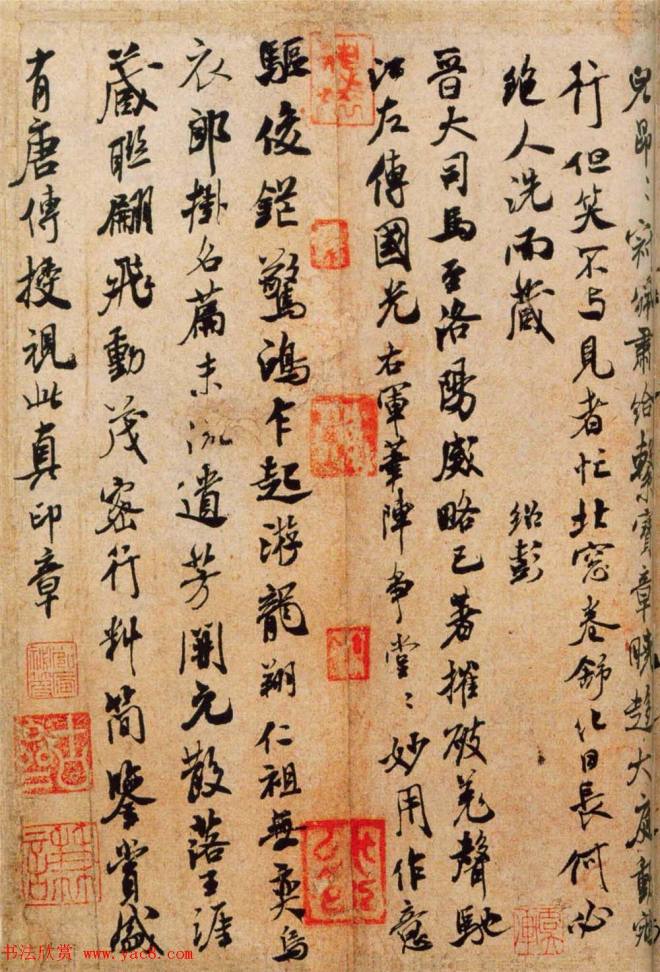 肅給繫寶章曉趨大庭動
行但笑不与見者忙北窓卷舒化日長何必
絶人洗而藏 紹彭
晉大司馬至洛陽威略已著摧破羌聲馳
江左傳國光右軍筆陣爭堂〻妙用作意
驅俊鋩驚鴻乍起游龍翔仁祖無奕烏
衣郎掛名篇末流遺芳開元散落王涯
藏聯翩飛動茂密行料簡鑒賞盛
有唐傳授視此真印章
书法欣赏 www.yac8.com